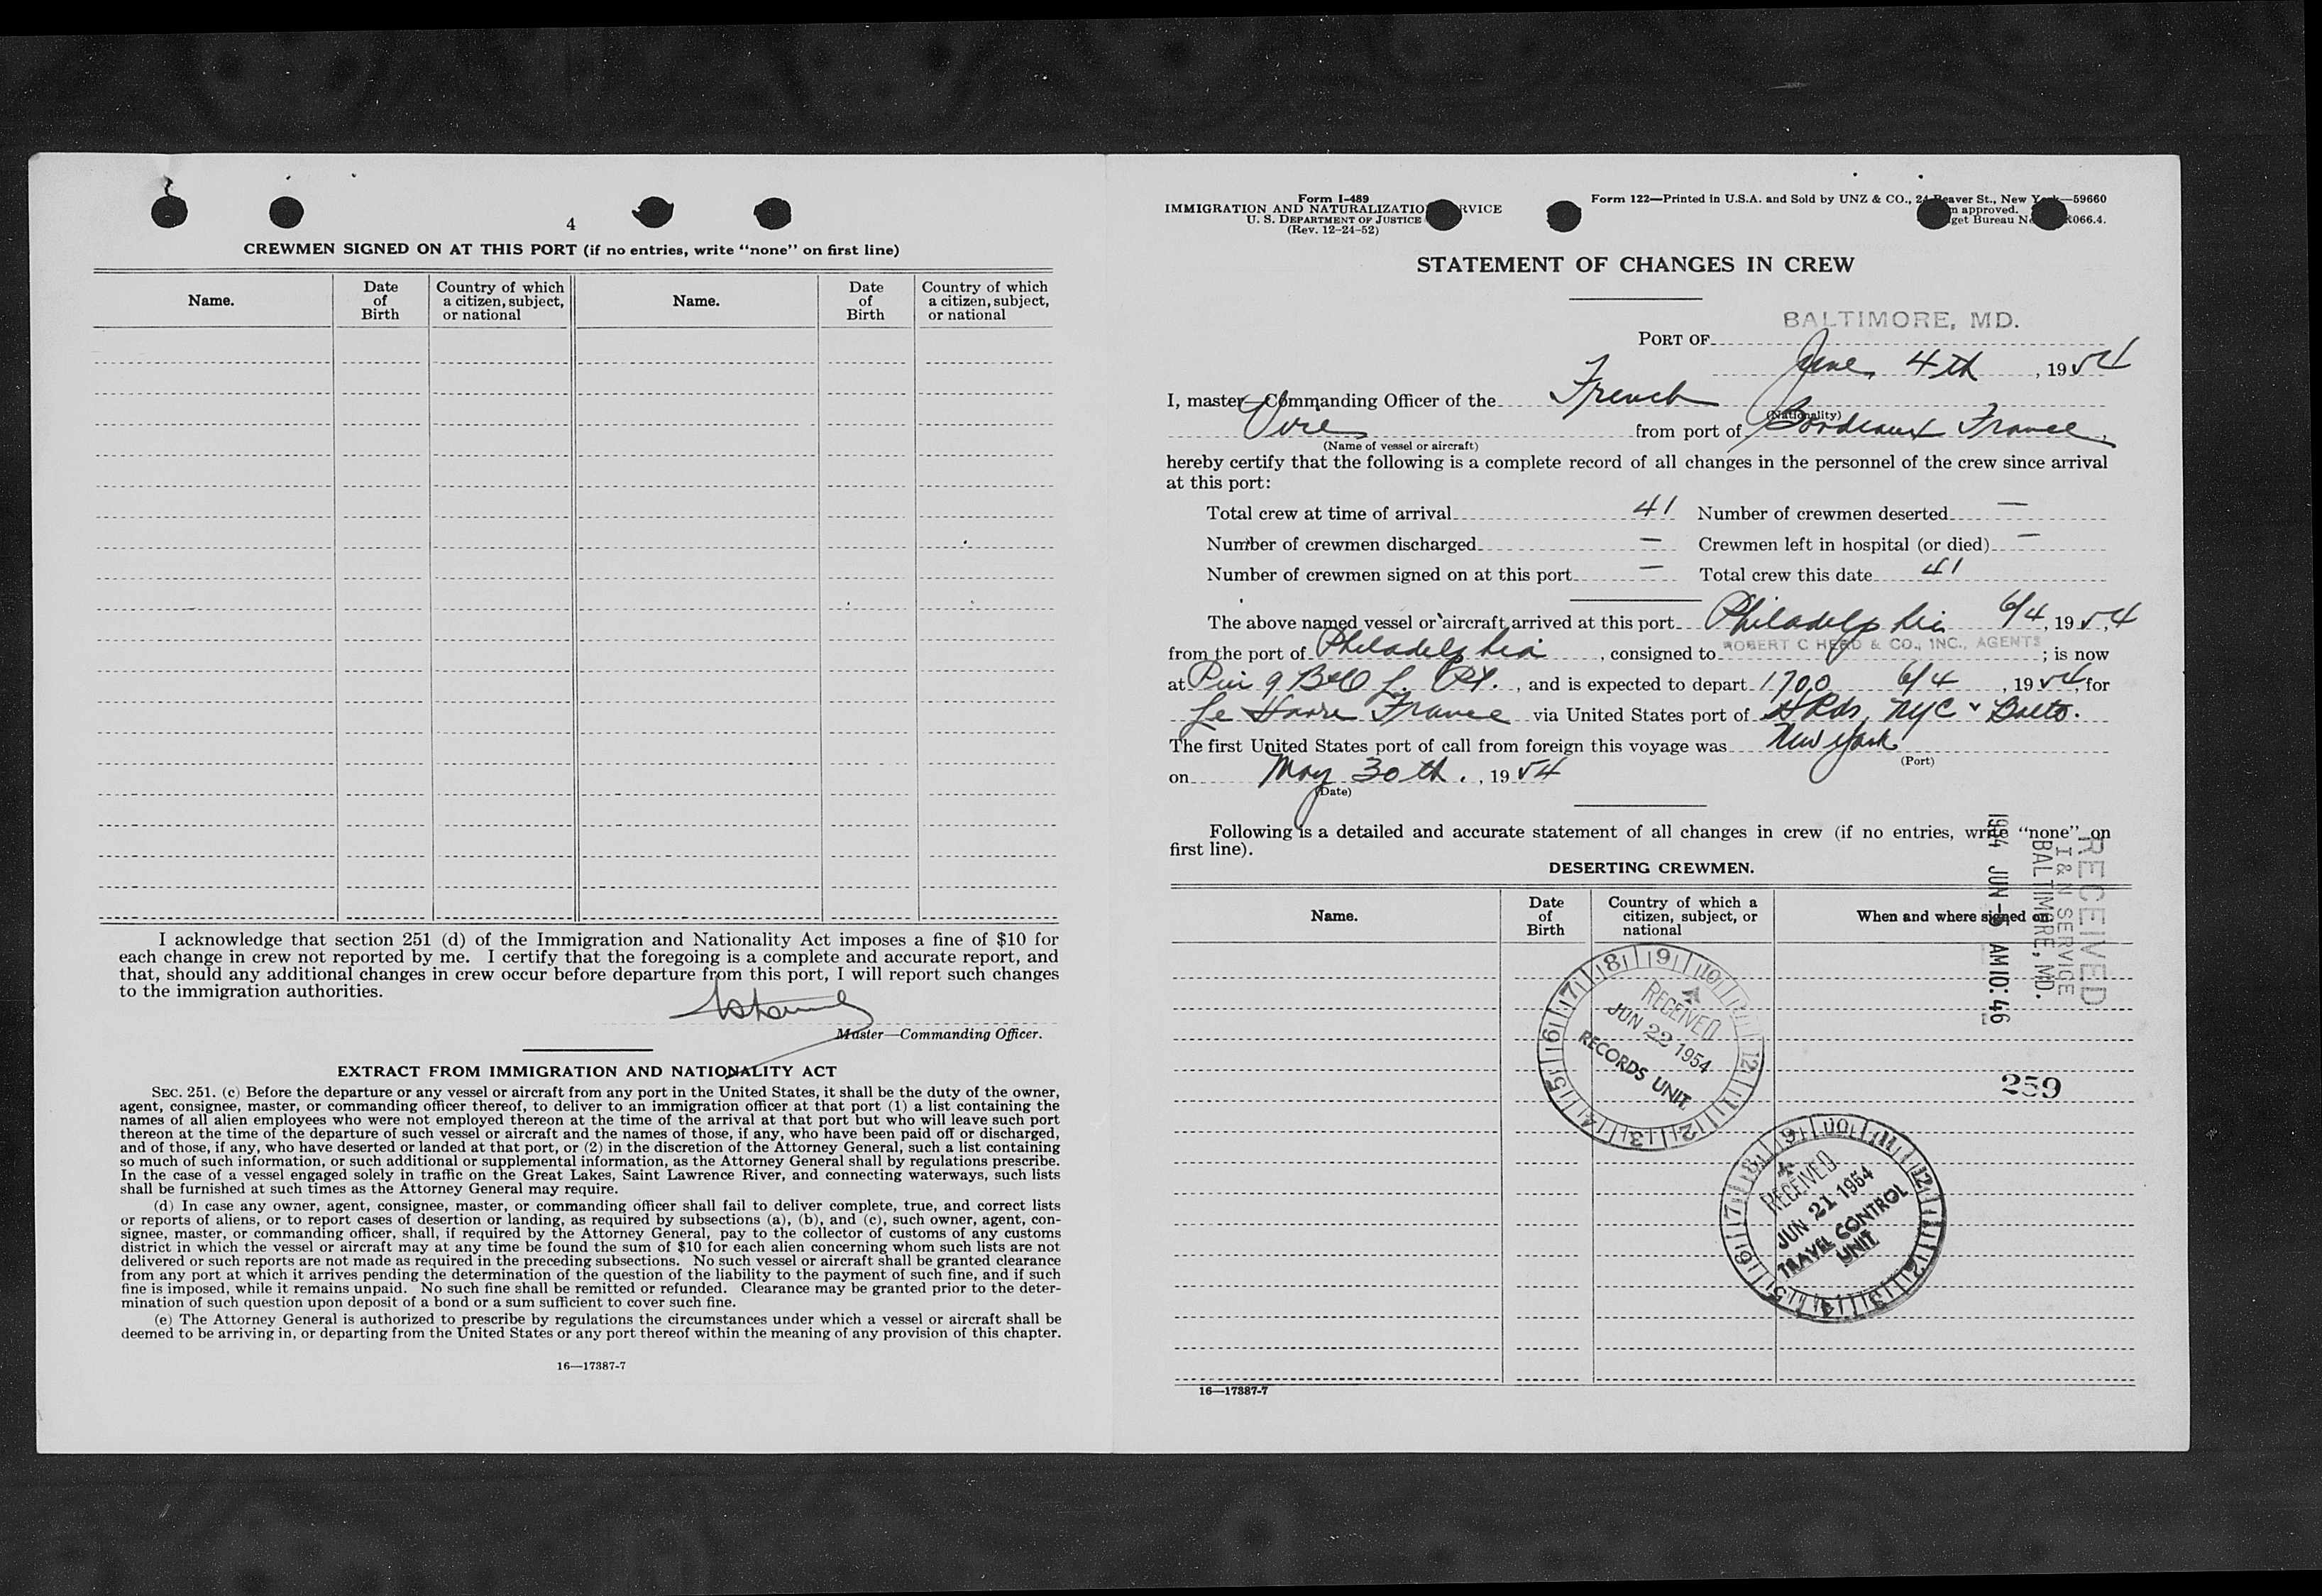 4
CREWMEN SIGNED ON AT THIS PORT (if no entries, write "none" on first line)
Name.
Date of Birth
Country of which a citizen, subject, or national
Name.
Date of Birth
Country of which a citizen, subject, or national
I acknowledge that section 251 (d) of the Immigration and Nationality Act imposes a fine of $10 for
each change in crew not reported by me. I certify that the foregoing is a complete and accurate report, and
that, should any additional changes in crew occur before departure from this port, I will report such changes
to the immigration authorities.
Master—Commanding Officer.
EXTRACT FROM IMMIGRATION AND NATIONALITY ACT
SEC. 251. (c) Before the departure or any vessel or aircraft from any port in the United States, it shall be the duty of the owner,
agent, consignee, master, or commanding officer thereof, to deliver to an immigration officer at that port (1) a list containing the
names of all alien employees who were not employed thereon at the time of the arrival at that port but who will leave such port
thereon at the time of the departure of such vessel or aircraft and the names of those, if any, who have been paid off or discharged,
and of those, if any, who have deserted or landed at that port, or (2) in the discretion of the Attorney General, such a list containing
so much of such information, or such additional or supplemental information, as the Attorney General shall by regulations prescribe.
In the case of a vessel engaged solely in traffic on the Great Lakes, Saint Lawrence River, and connecting waterways, such lists
shall be furnished at such times as the Attorney General may require.
(d) In case any owner, agent, consignee, master, or commanding officer shall fail to deliver complete, true, and correct lists
or reports of aliens, or to report cases of desertion or landing, as required by subsections (a), (b), and (c), such owner, agent, con-
signee, master, or commanding officer, shall, if required by the Attorney General, pay to the collector of customs of any customs
district in which the vessel or aircraft may at any time be found the sum of $10 for each alien concerning whom such lists are not
delivered or such reports are not made as required in the preceding subsections. No such vessel or aircraft shall be granted clearance
from any port at which it arrives pending the determination of the question of the liability to the payment of such fine, and if such
fine is imposed, while it remains unpaid. No such fine shall be remitted or refunded. Clearance may be granted prior to the deter-
mination of such question upon deposit of a bond or a sum sufficient to cover such fine.
(e) The Attorney General is authorized to prescribe by regulations the circumstances under which a vessel or aircraft shall be
deemed to be arriving in, or departing from the United States or any port thereof within the meaning of any provision of this chapter.
16—17387-7
Form I-489
IMMIGRATION AND NATURALIZATIO RVICE
U. S. DEPARTMENT OF JUSTICE
(Rev. 12-24-52)
Form 122—Printed in U.S.A. and Sold by UNZ & CO., 24 Beaver St., New York—59660
approved.
get Bureau N 066.4.
STATEMENT OF CHANGES IN CREW
BALTIMORE, MD.
PORT OF
June 4th, 1954
I, master—Commanding Officer of the French
(Nationality)
Vire from port of Bordeaux France,
(Name of vessel or aircraft)
hereby certify that the following is a complete record of all changes in the personnel of the crew since arrival
at this port:
Total crew at time of arrival 41 Number of crewmen deserted —
Number of crewmen discharged — Crewmen left in hospital (or died) —
Number of crewmen signed on at this port — Total crew this date 41
The above named vessel or aircraft arrived at this port Philadelphia 6/4, 1954
from the port of Philadelphia, consigned to ROBERT C HERD & CO., INC., AGENTS; is now
at Pier 9 B&O L. Pt., and is expected to depart 1700 6/4, 1954, for
Le Havre France via United States port of H Rds, NYC Balto.
The first United States port of call from foreign this voyage was New York
(Port)
on May 30th, 1954
(Date)
Following is a detailed and accurate statement of all changes in crew (if no entries, write "none" on
first line).
DESERTING CREWMEN.
Name.
Date of Birth
Country of which a citizen, subject, or national
When and where signed on
RECEIVED
I & N SERVICE
BALTIMORE, MD.
1954 JUN -5 AM 10:46
RECEIVED
JUN 22 1954
RECORDS UNIT
259
RECEIVED
JUN 21 1954
TRAVEL CONTROL
UNIT
16—17387-7